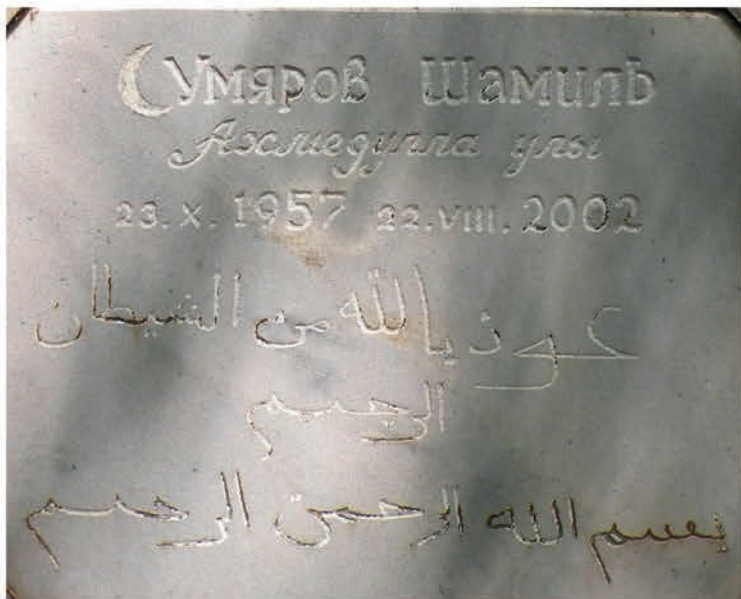 Умяров Шамиль
Ахмедулла улы
23.X.1957 22.VIII.2002
عوذ بالله من الشيطان
الرجيم
بسم الله الرحمن الرحيم